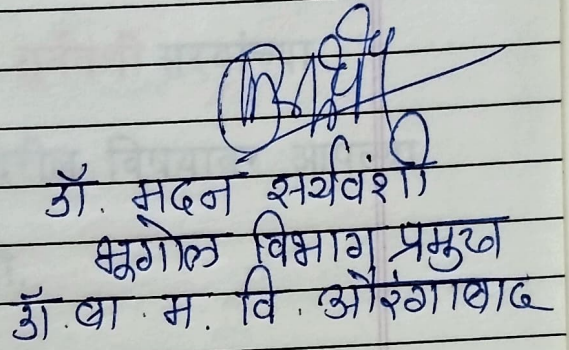 डॉ. मदन सूर्यवंशी
भूगोल विभाग प्रमुख
डॉ. बा. म. वि. औरंगाबाद